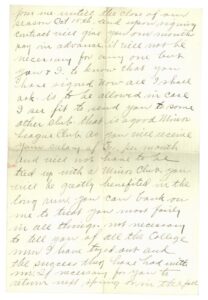 you me untill the close of our
season Oct 15th, and upon signing
contract will give you one months
pay in advance. it will not be
necessary for any one but
you & I to know that you
have signed now all I shall
ask is to be allowed in case
I see fit to send you to some
other Club that is a good Minor
League Club as you will receive
your salary of per month
and will not have to be
tied up with a Minor Club, you
will be greatly benefited in the
long run. you can bank on
me to treat you most fairly
in all things, not necessary
to tell you of all the College
men I have tryed out and
the success they have had with
me. If necessary for you to
return next spring or in the fall